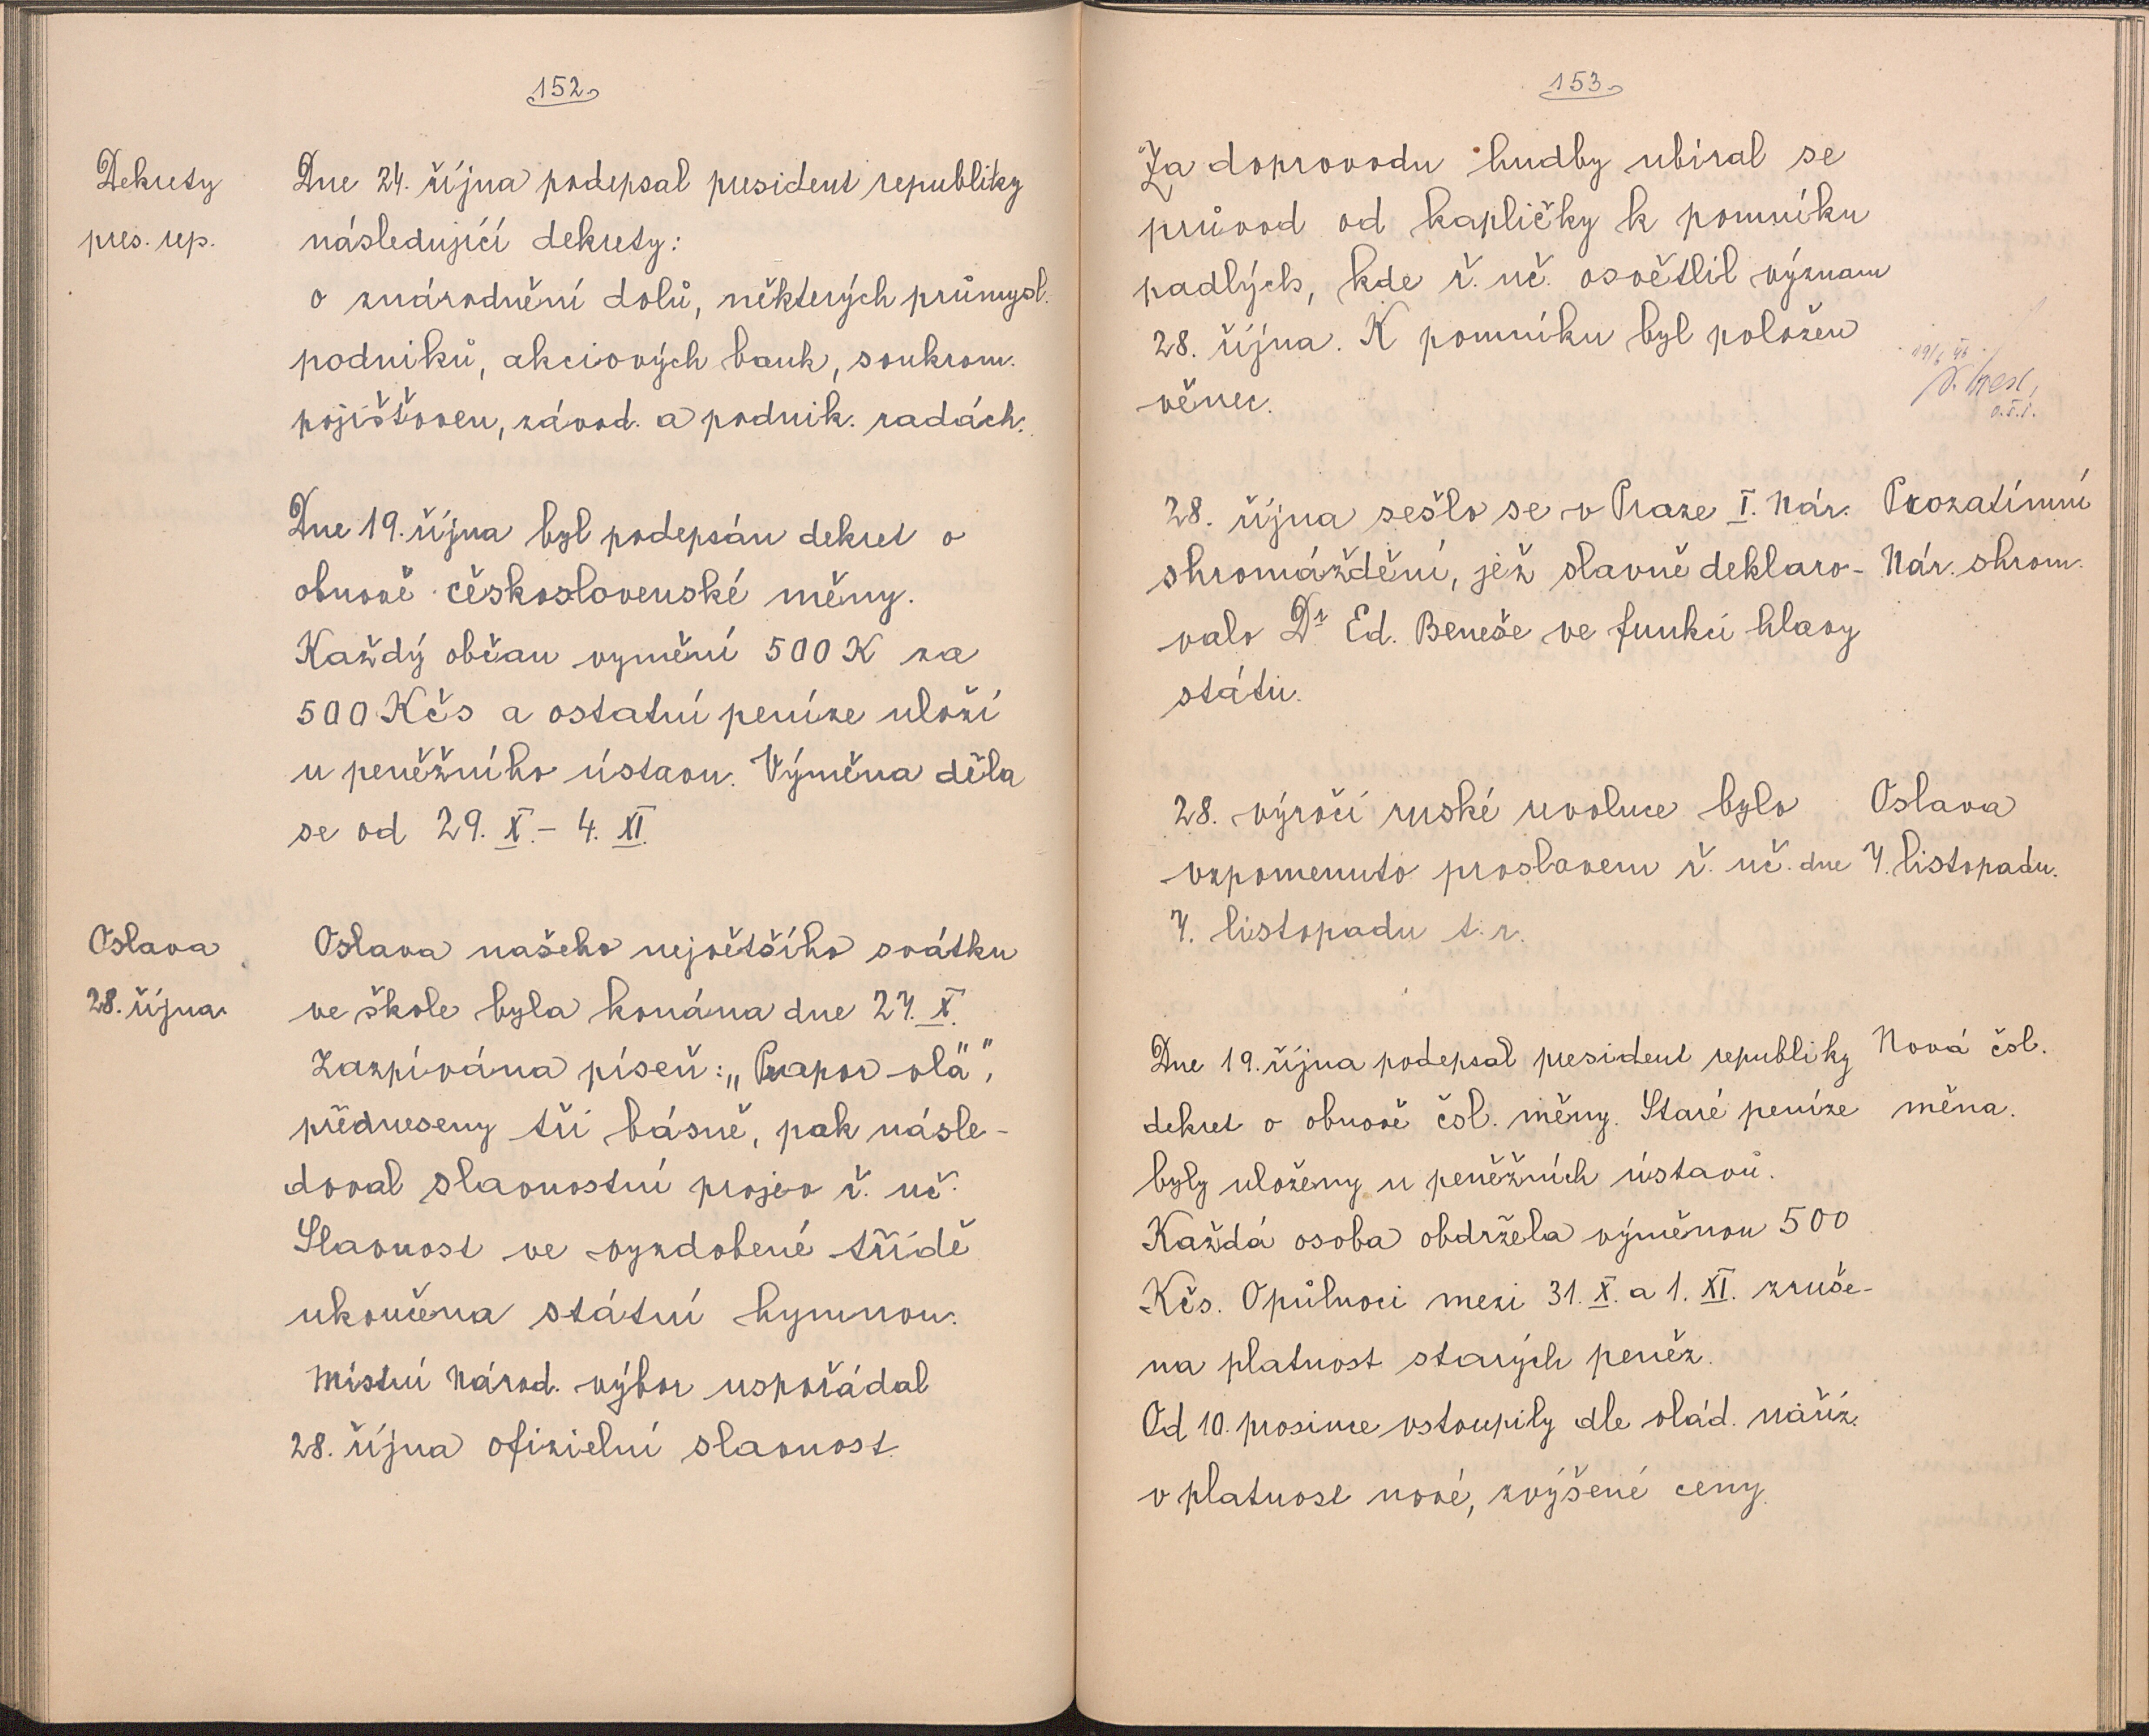 152
Dekrety
pres. rep.
Dne 24. října podepsal president republiky
následující dekrety:
o znárodnění dolů, některých průmysl.
podniků, akciových bank, soukrom.
pojišťoven, závod. a podnik. radách.
Dne 19. října byl podepsán dekret o
obnově československé měny.
Každý občan vymění 500 K za
500 Kčs a ostatní peníze uloží
u peněžního ústavu. Výměna děla
se od 29. X. - 4. XI.
Oslava
28. října.
Oslava našeho největšího svátku
ve škole byla konána dne 27. X.
Zazpívána píseň: „Prapor vlá",
předneseny tři básně, pak násle-
doval slavnostní projev ř. uč.
Slavnost ve vyzdobené třídě
ukončena státní hymnou.
Místní Národ. výbor uspořádal
28. října ofizielní slavnost.
153
Za doprovodu hudby ubíral se
průvod od kapličky k pomníku
padlých, kde ř. uč. osvětlil význam
28. října. K pomníku byl položen
věnec.
28. října sešlo se v Praze I. Nár.
shromáždění, jež slavně deklaro-
valo Dr Ed. Beneše ve funkci hlavy
státu.
Prozatímní
Nár. shrom.
28. výročí ruské revoluce bylo
vzpomenuto proslovem ř. uč. dne
7. listopadu t. r.
Oslava
7. listopadu.
Dne 19. října podepsal president republiky
dekret o obnově čsl. měny. Staré peníze
byly uloženy u peněžních ústavů.
Každá osoba obdržela výměnou 500
Kčs. O půlnoci mezi 31. X. a 1. XI. zruše-
na platnost starých peněz.
Od 10. prosince vstoupily dle vlád. naříz.
v platnost nové, zvýšené ceny.
Nová čsl.
měna.